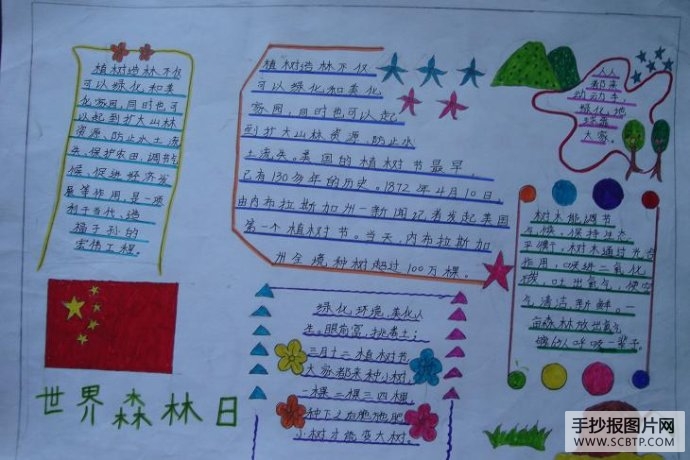 植树造林不仅
可以绿化和美
化家园,同时也可
以起到扩大山林
资源、防止水土流
失、保护农田、调节气
候、促进经济发
展等作用,是一项
利于当代、造
福子孙的
宏伟工程。
植树造林不仅
可以绿化和美化
家园,同时也可以起
到扩大山林资源、防止水
土流失。美国的植树节最早,
已有130多年的历史。1872年4月10日,
由内布拉斯加州一新闻记者发起美国
第一个植树节。当天,内布拉斯加
州全境,种树超过100万棵。
人人
都来
动动手,
绿化地
球靠
大家。
树木能调节
气候,保持生态
平衡,树木通过光合
作用,吸进二氧化
碳,吐出氧气,使空
气清洁新鲜。一
亩森林放出氧气
够65人呼吸一辈子。
绿化环境,美化人
生。眼前富,挑粪土;
三月十二植树节
大家都来种小树,
一棵二棵三四棵,
种下之后施施肥
小树才能变大树。
世界森林日
手抄报图片网
WWW.SCBTP.COM